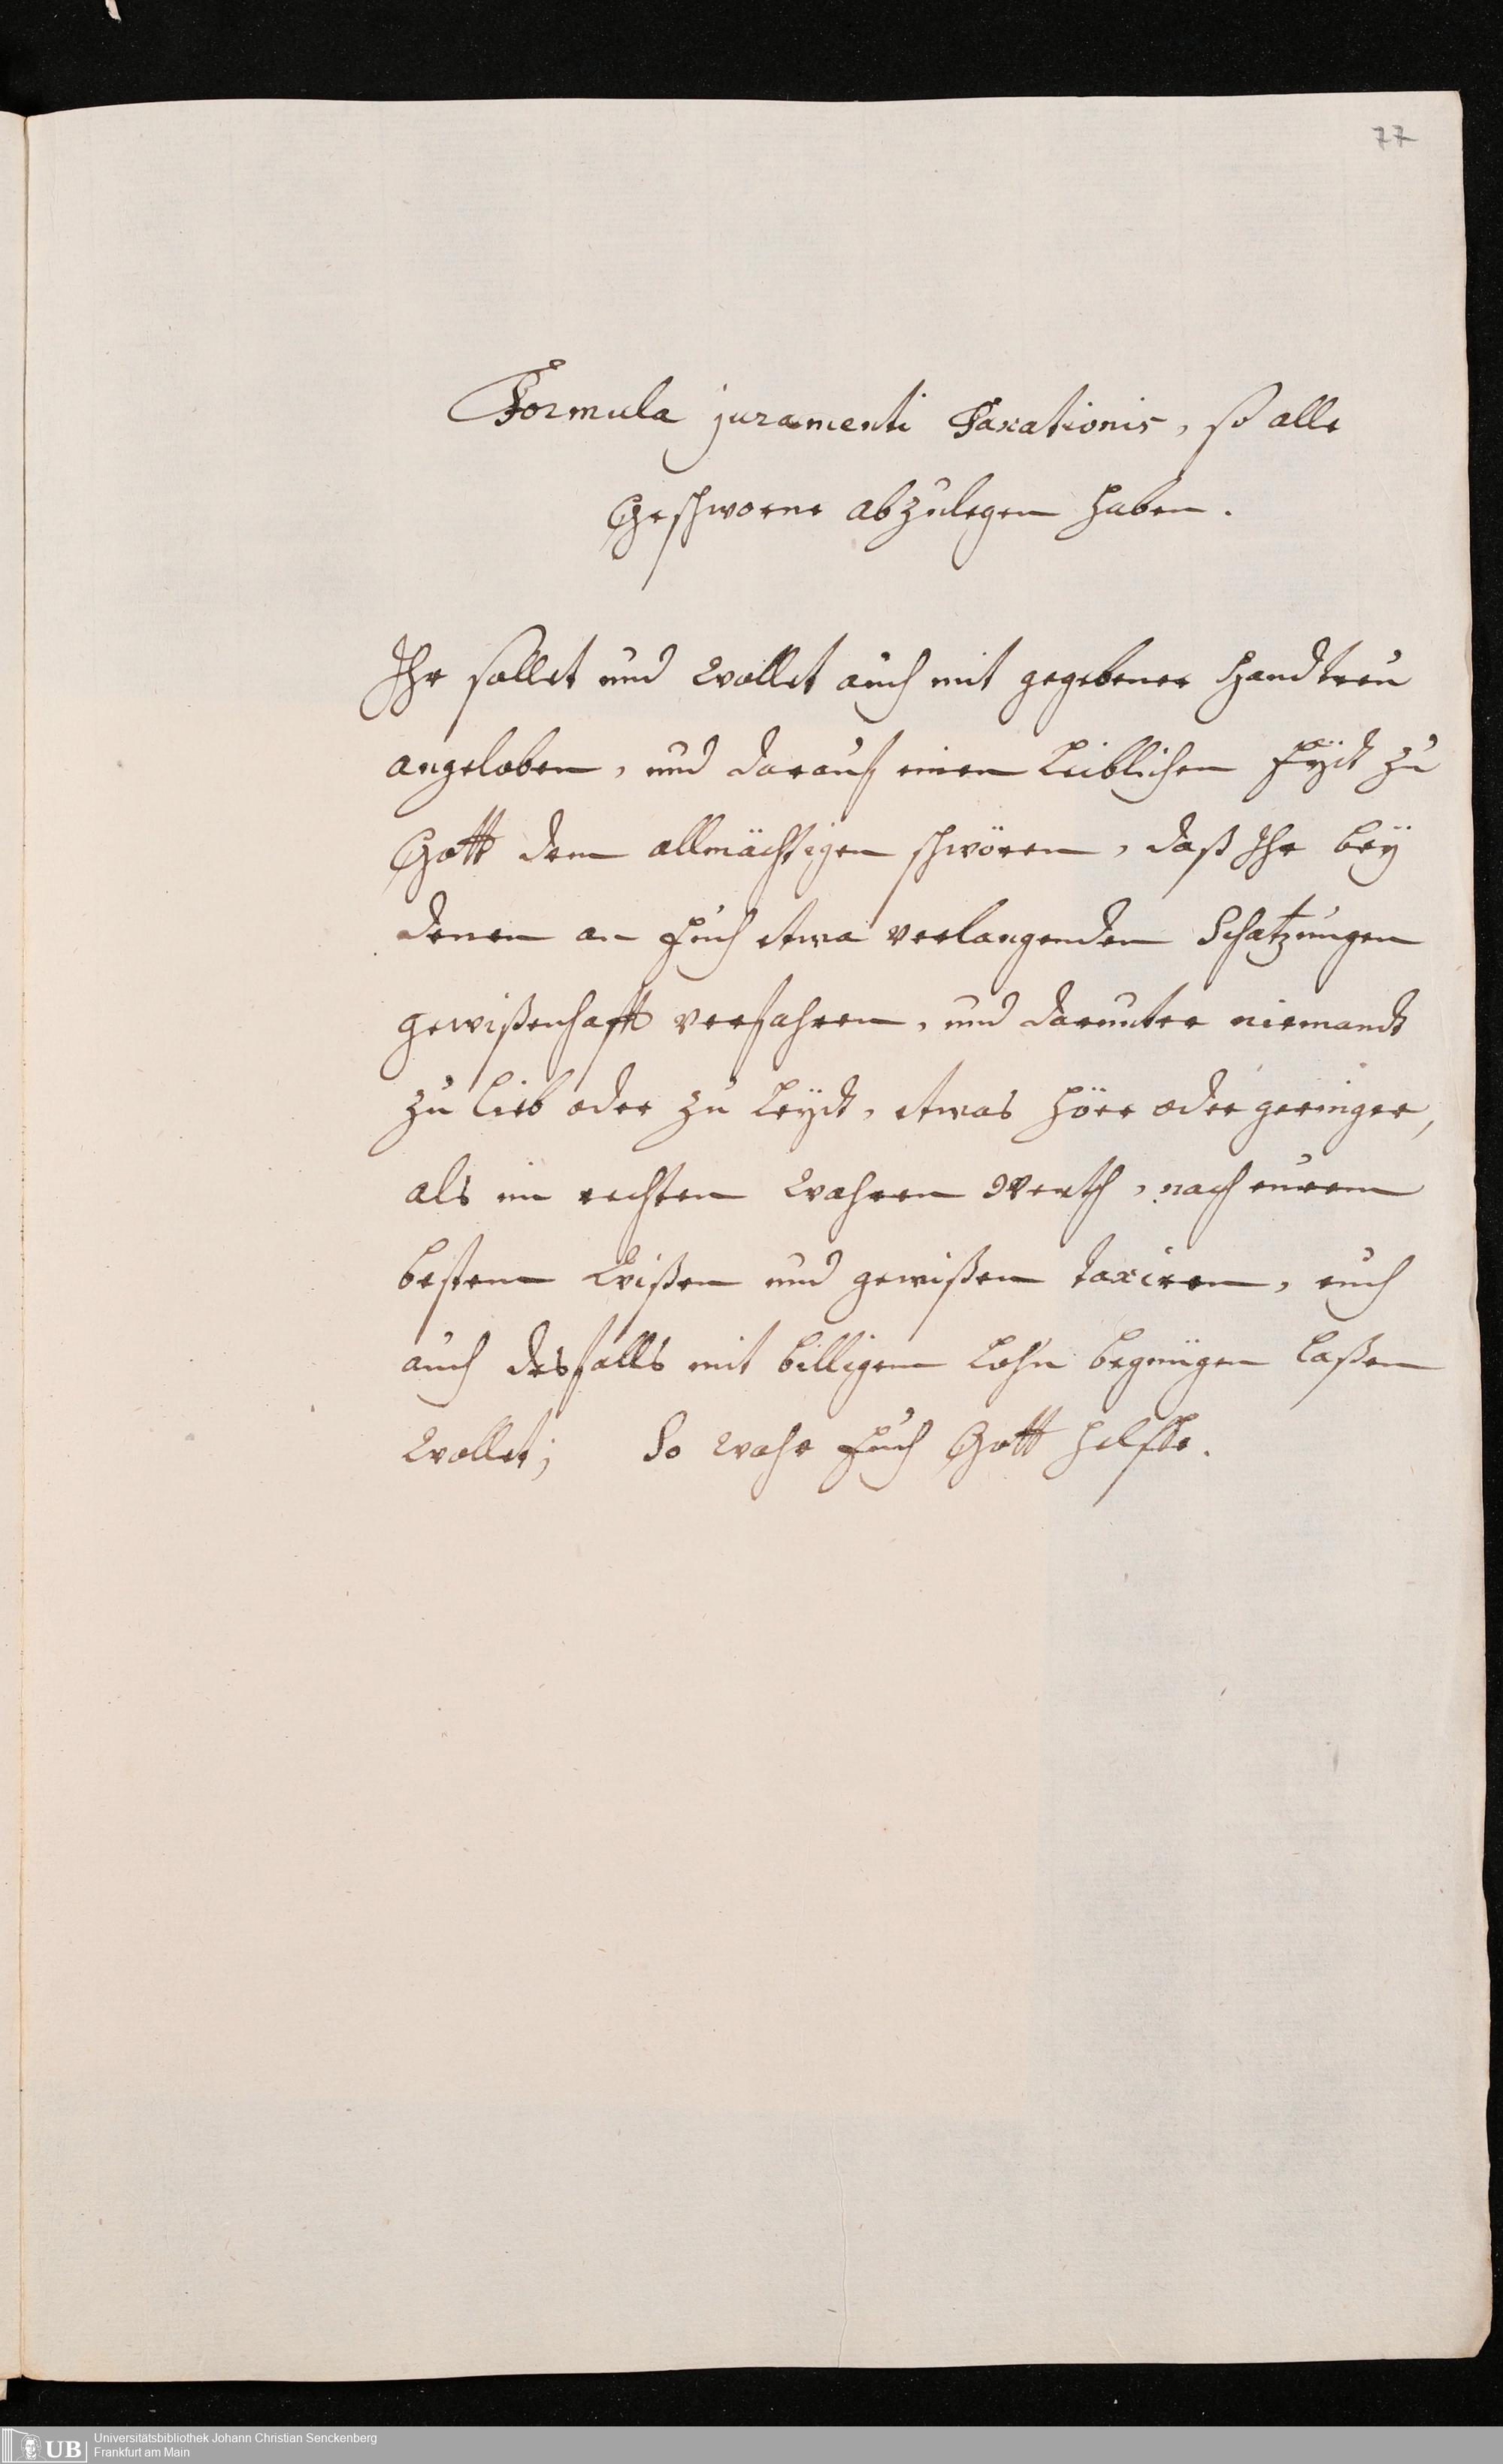 77
Formula juramenti Taxationis, so alle
Geschworne abzulegen haben.
Ihr sollet und wollet auch mit gegebener Handtreu
angeloben, und darauf einen Leiblichen Eÿdt zu
Gott dem allmächtigen schwören, daß Ihr beÿ
denen an Euch etwa verlangenden Schatzungen
gewißenhafft verfahren, und darunter niemandt
zu lieb oder zu leÿdt, etwas höer oder geringer,
als im rechten wahren Werth, nach eurem
bestem wißen und gewißen taxiren, euch
auch desfalls mit billigem Lohn begnügen laßen
wollet; So wahr Euch Gott helffe.
UB
Universitätsbibliothek Johann Christian Senckenberg
Frankfurt am Main